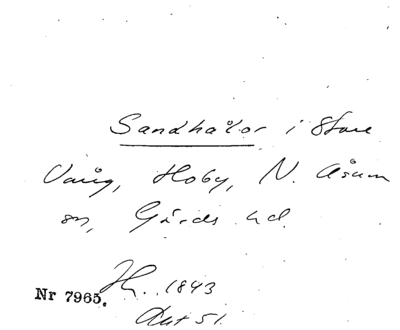 Sandhålor i Store
Vång, Hoby, N. Åsum
sn, Gärds hd.
H. 1843
Nr 7965.
Akt 51.